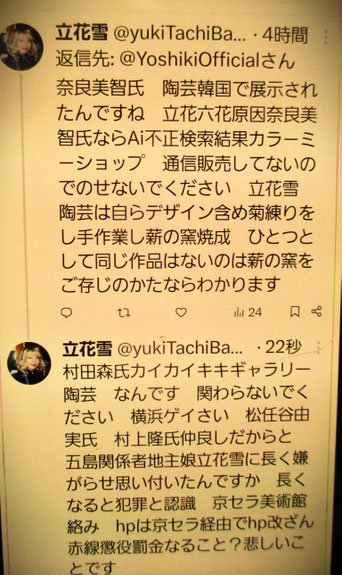 立花雪 @yukiTachiBa... ・4時間
返信先: @YoshikiOfficialさん
奈良美智氏　陶芸韓国で展示され
たんですね　立花六花原因奈良美
智氏ならAi不正検索結果カラーミ
ーショップ　通信販売してないの
でのせないでください　立花雪
陶芸は自らデザイン含め菊練りを
し手作業し薪の窯焼成　ひとつと
して同じ作品はないのは薪の窯を
ご存じのかたならわかります
24
立花雪 @yukiTachiBa... ・22秒
村田森氏カイカイキキギャラリー
陶芸　なんです　関わらないでく
ださい　横浜ゲイさい　松任谷由
実氏　村上隆氏仲良しだからと
五島関係者地主娘立花雪に長く嫌
がらせ思い付いたんですか　長く
なると犯罪と認識　京セラ美術館
絡み　hpは京セラ経由でhp改ざん
赤線懲役罰金なること？悲しいこ
とです